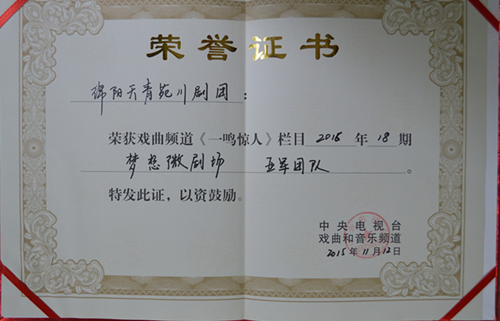 荣誉证书
绵阳天青苑川剧团：
荣获戏曲频道《一鸣惊人》栏目2015年18期
梦想微剧场 五军团队。
特发此证，以资鼓励。
中央电视台
戏曲和音乐频道
2015年11月12日